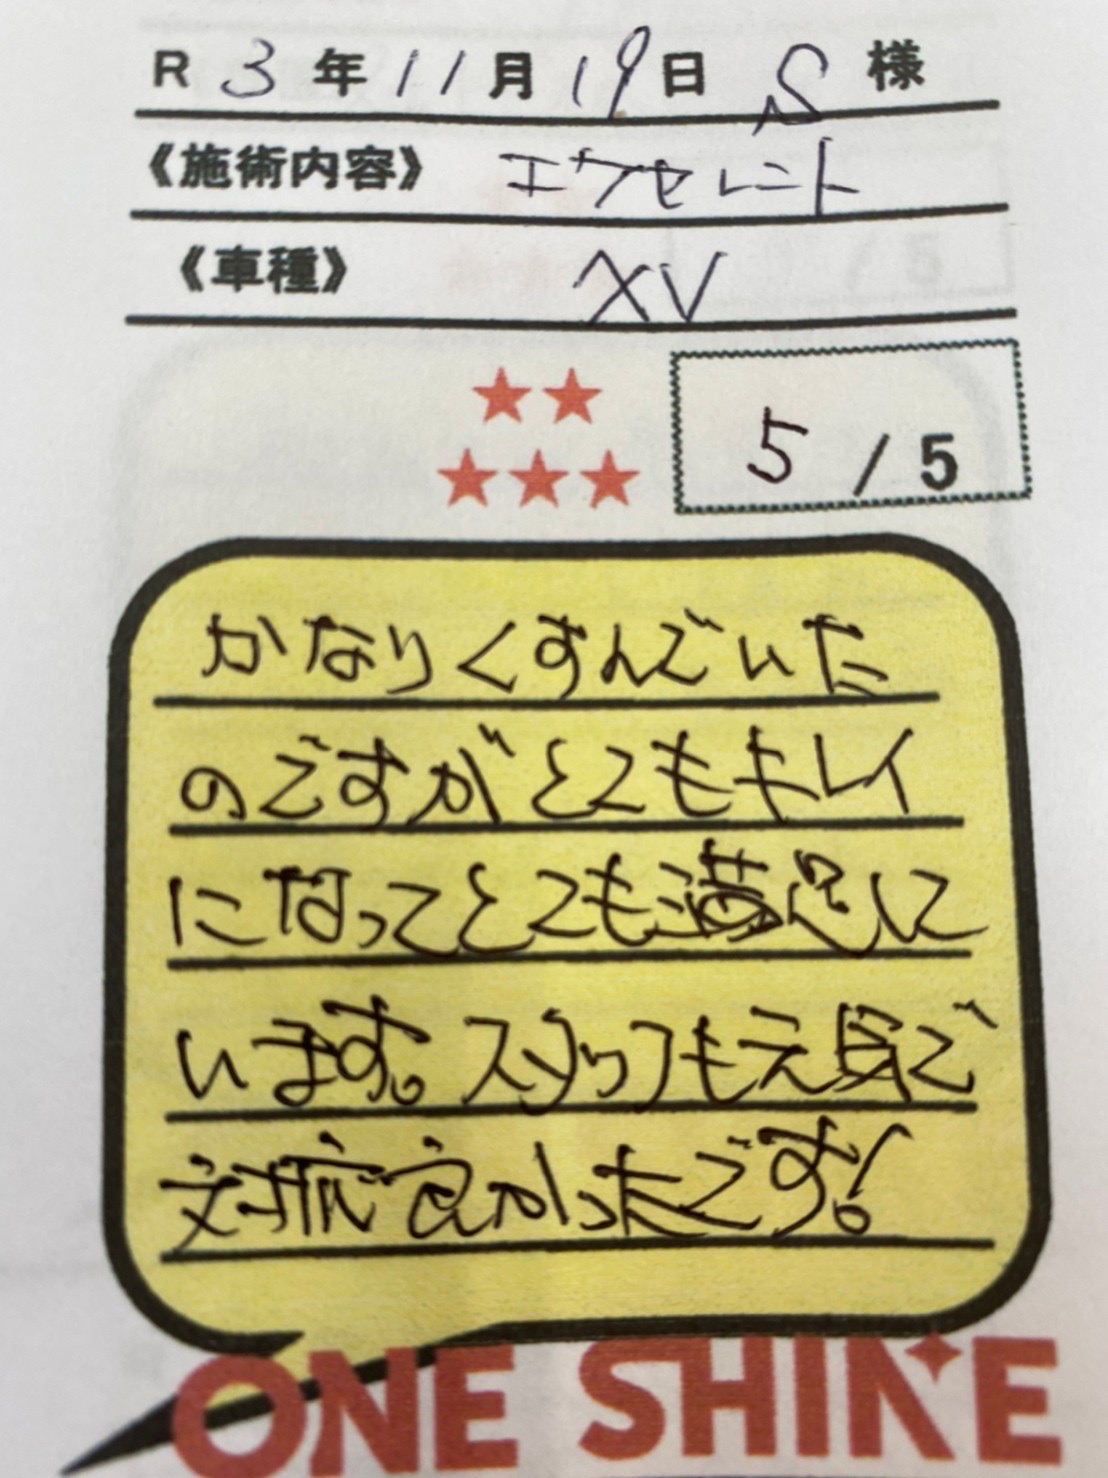 R 3年11月19日 S 様
《施術内容》 エクセレント
《車種》 XV
5 / 5
かなりくすんでいた
のですがとてもキレイ
になってとても満足して
います。スタッフも元気で
対応良かったです!
ONE SHINE